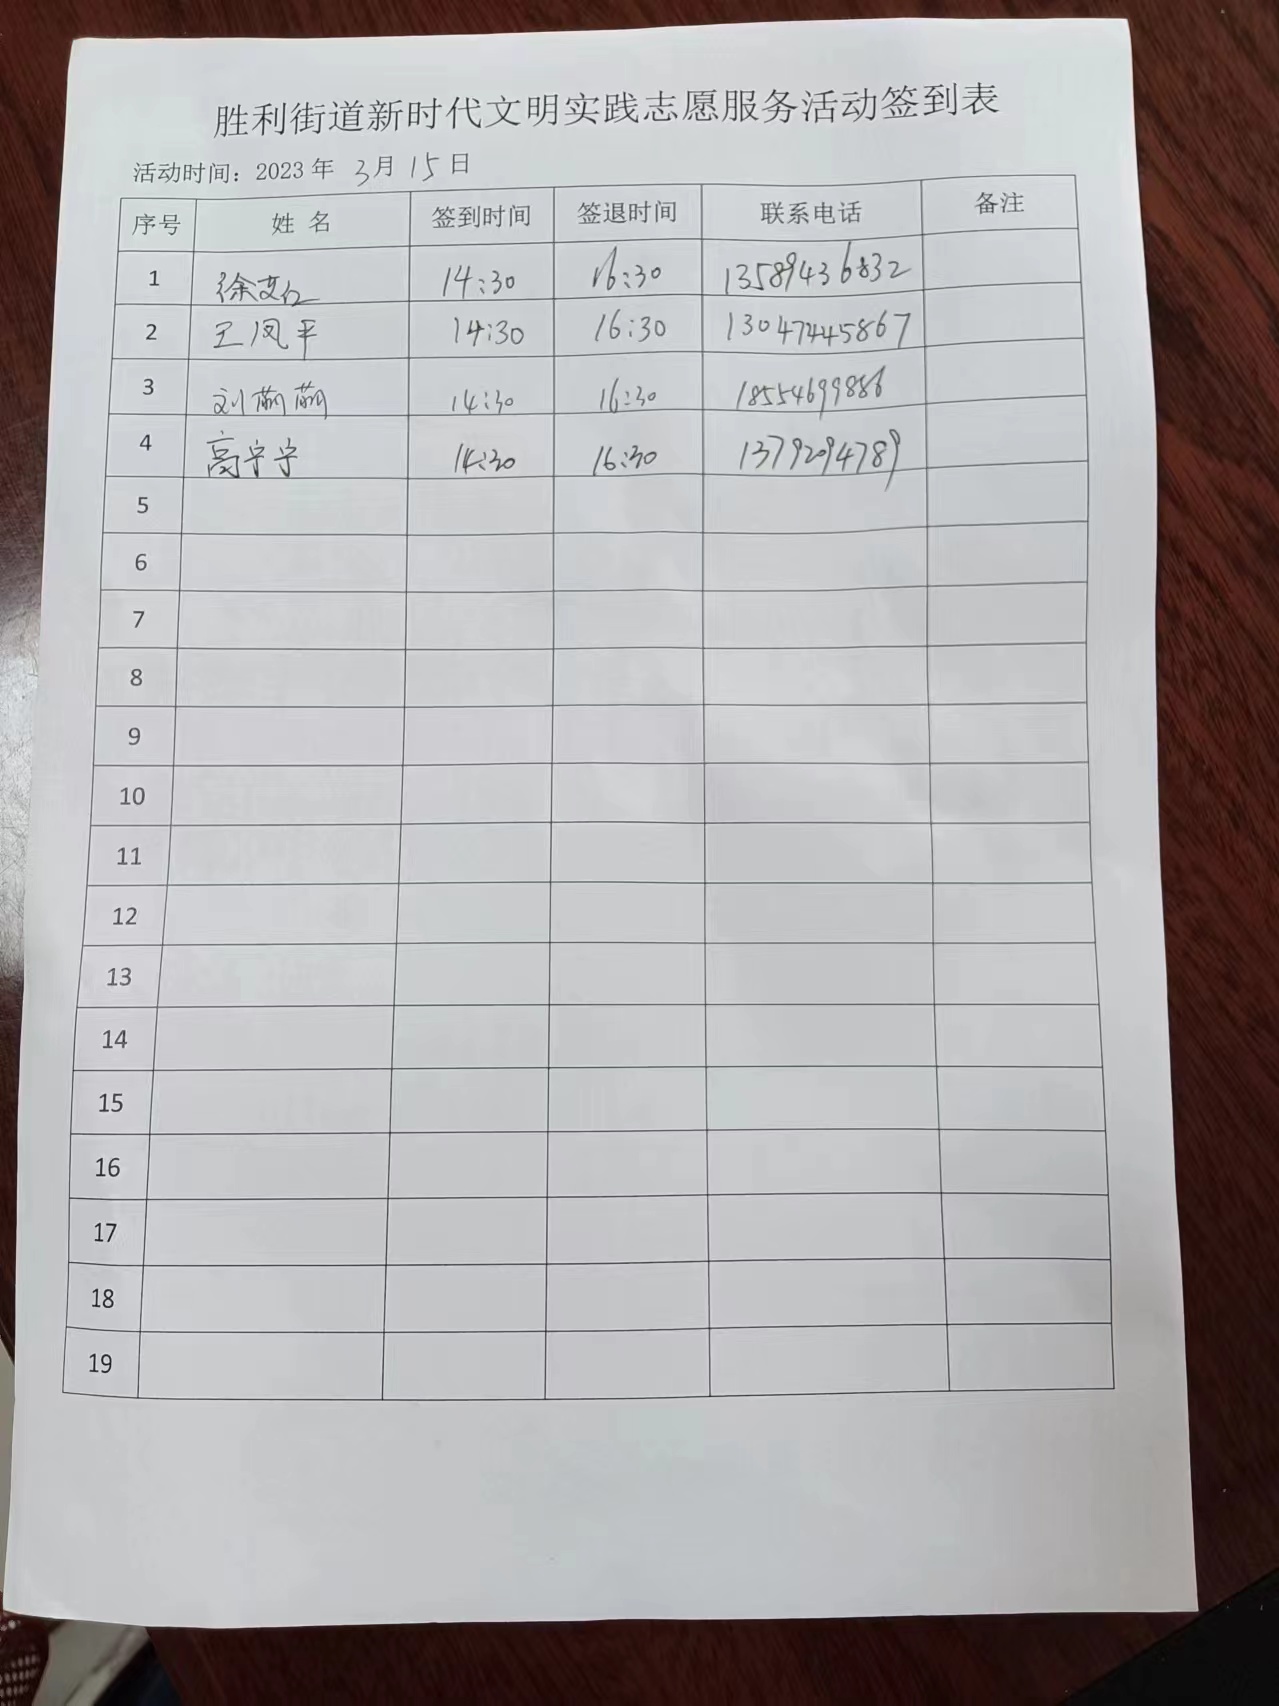 胜利街道新时代文明实践志愿服务活动签到表
活动时间：2023年 3月 15日
序号 姓 名 签到时间 签退时间 联系电话 备注
1 徐 14:30 16:30 13589436832
2 王凤平 14:30 16:30 13047445867
3 刘萌萌 14:30 16:30 18554699886
4 高宁宁 14:30 16:30 13792094789
5
6
7
8
9
10
11
12
13
14
15
16
17
18
19